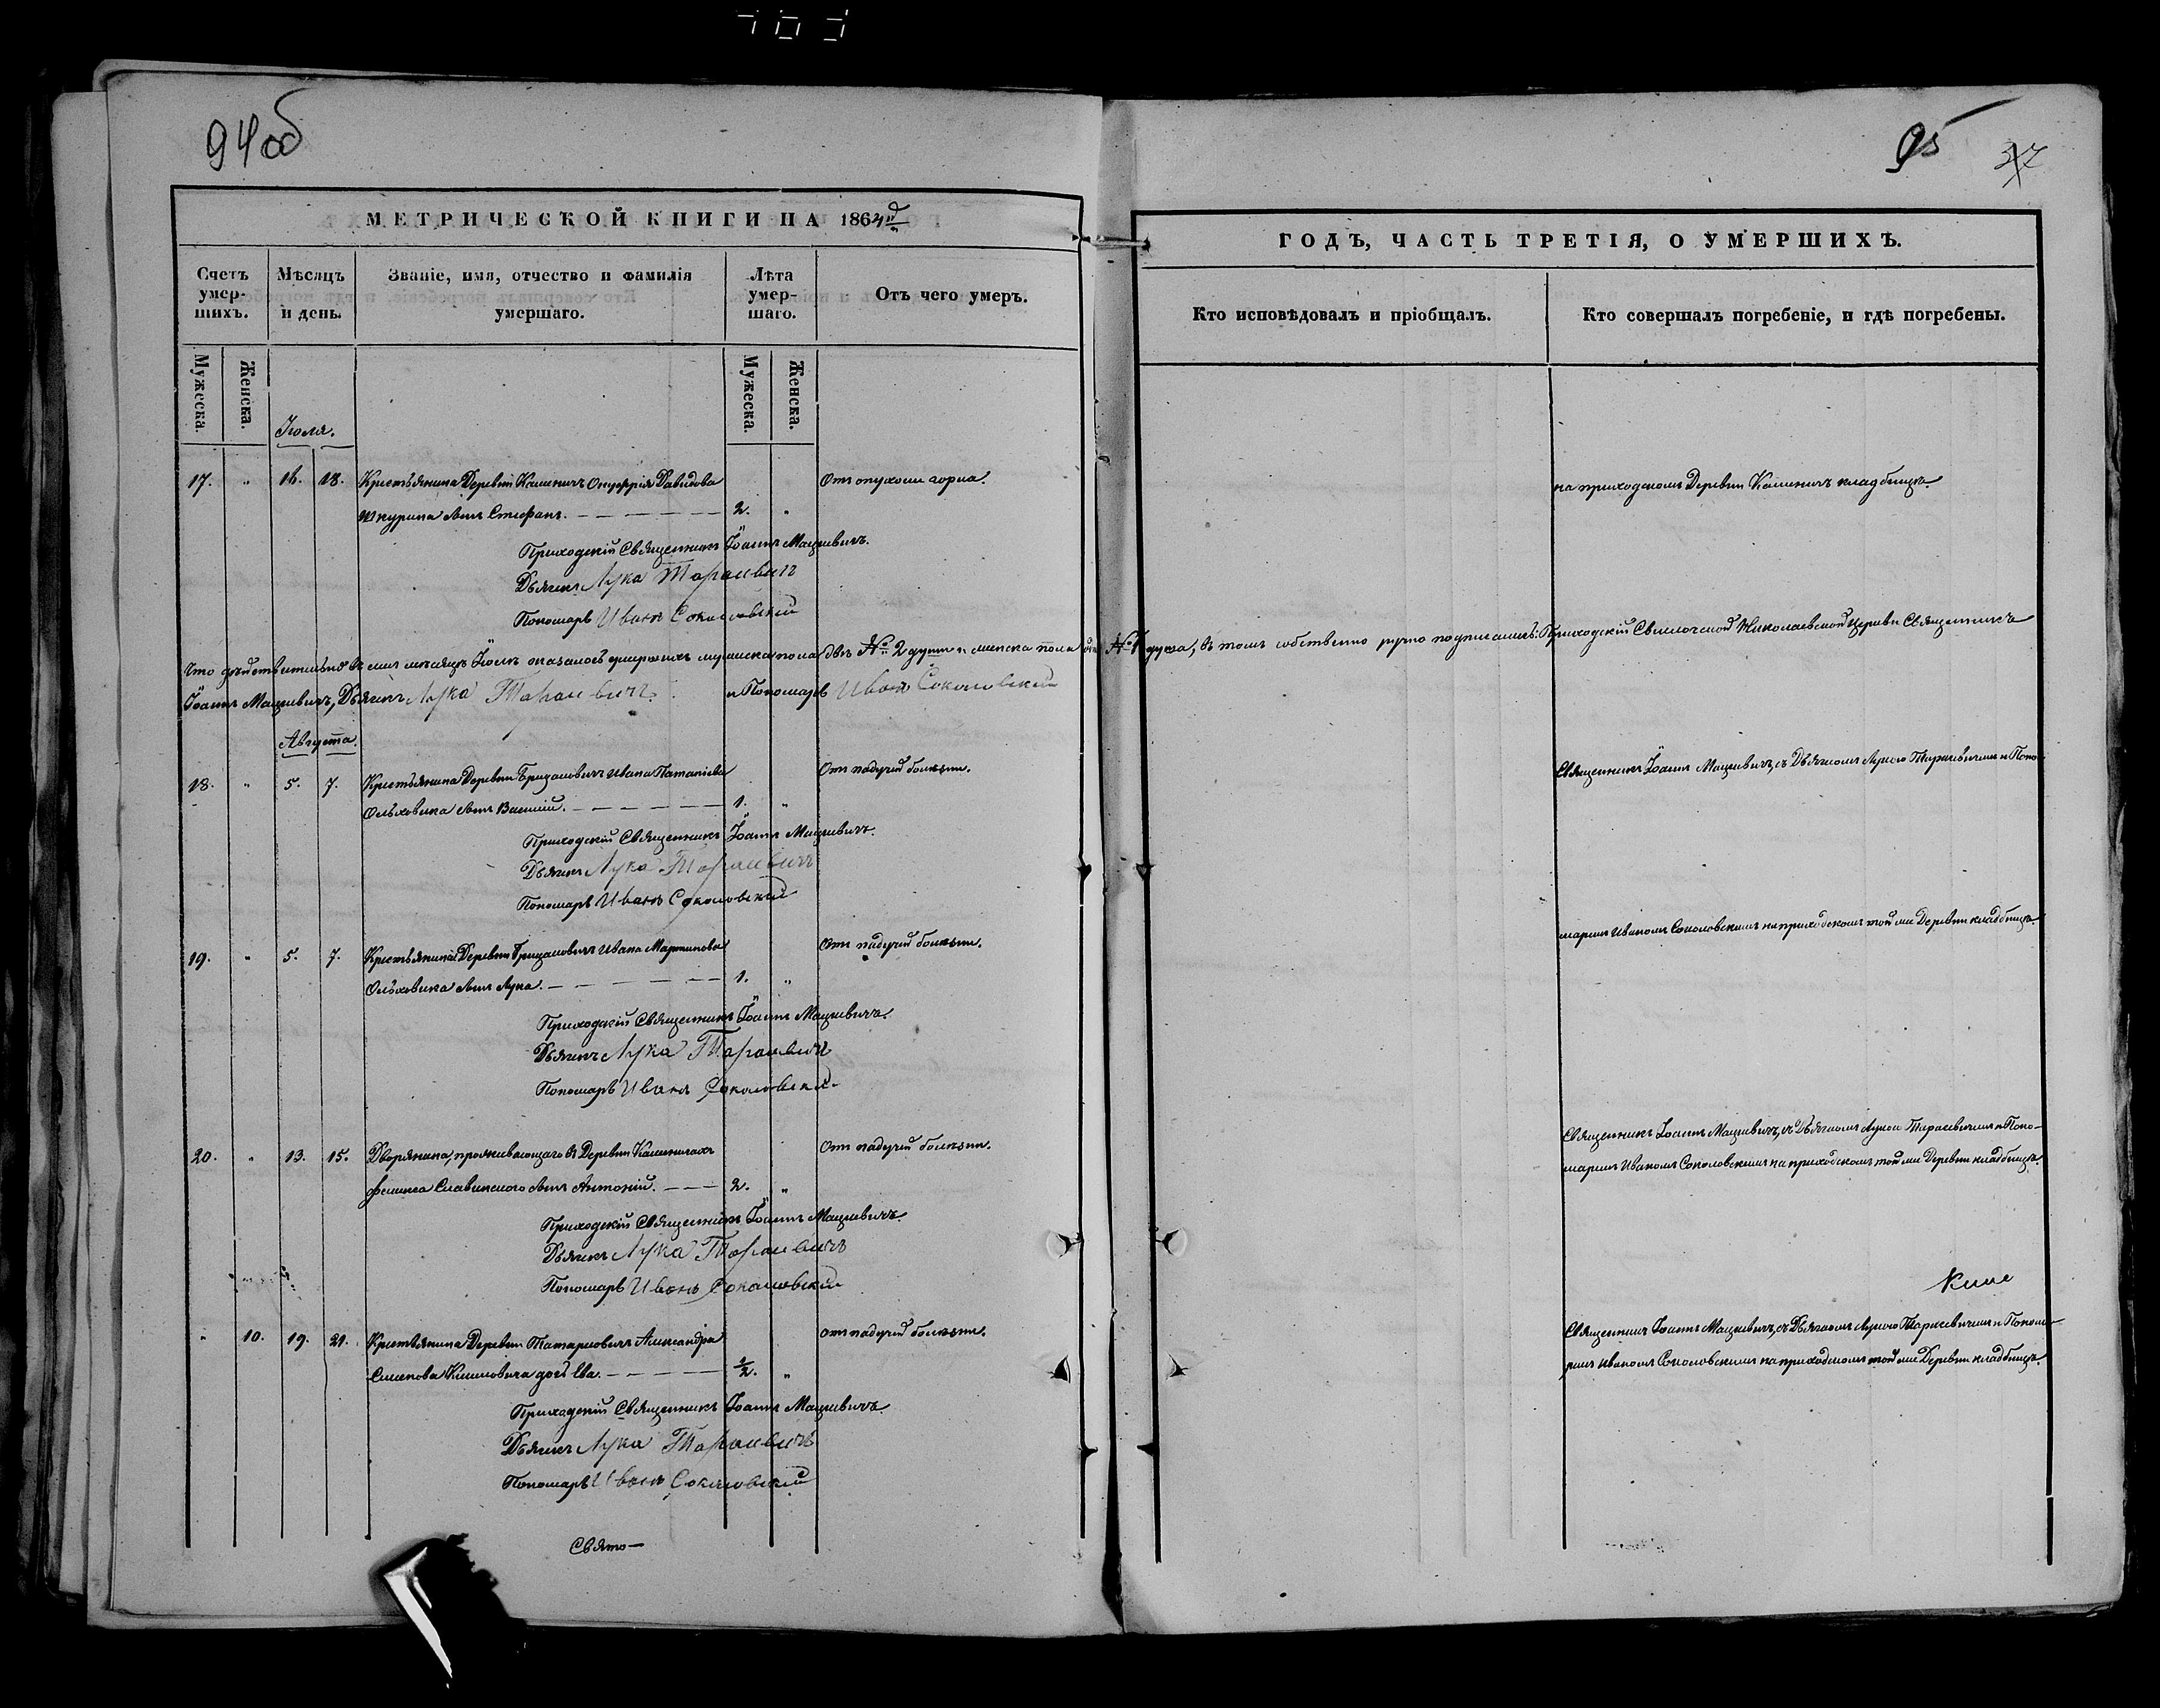 94 об
95
37
МЕТРИЧЕСКОЙ КНИГИ НА 1864й
ГОДЪ, ЧАСТЬ ТРЕТІЯ, О УМЕРШИХЪ.
Счетъ умер-шихъ.
Мѣсяцъ и день.
Званіе, имя, отчество и фамилія умершаго.
Лѣта умер-шаго.
Отъ чего умеръ.
Кто исповѣдовалъ и пріобщалъ.
Кто совершалъ погребеніе, и гдѣ погребены.
Мужеска.
Женска.
Мужеска.
Женска.
Іюля.
17. " 16. 18. Крестьянина Деревни Каменичъ Онуфрія Давидова
Шкурина сынъ Стефанъ. 2. "
Отъ опухоли горла.
на приходскомъ Деревни Каменичъ кладбищѣ.
Приходскій Священникъ Іоаннъ Мацкевичъ.
Дьячекъ Лука Тарасевичъ
Пономарь Иванъ Соколовскій
Что дѣйствительно въ семъ мѣсяцѣ Іюлѣ оказалось умершихъ мужеска пола двѣ № 2 души и женска пола № 1 душа, въ томъ собственно ручно подписались: Приходскій Николаевской церкви Священникъ
Іоаннъ Мацкевичъ, Дьячекъ Лука Тарасевичъ и Пономарь Иванъ Соколовскій
Августа.
18. " 5. 7. Крестьянина Деревни Ивана
Ольховика сынъ Василій. 1. "
Отъ падучей болезни.
Священникъ Іоаннъ Мацкевичъ, съ Дьячкомъ Лукою Тарасевичемъ и Поно-
Приходскій Священникъ Іоаннъ Мацкевичъ.
Дьячекъ Лука Тарасевичъ
Пономарь Иванъ Соколовскій
маремъ Иваномъ Соколовскимъ на приходскомъ той же Деревни кладбищѣ.
19. " 5. 7. Крестьянина Деревни Ивана Мартинова
Ольховика сынъ Лука. 1. "
Отъ падучей болезни.
Приходскій Священникъ Іоаннъ Мацкевичъ.
Дьячекъ Лука Тарасевичъ
Пономарь Иванъ Соколовскій
Священникъ Іоаннъ Мацкевичъ, съ Дьячкомъ Лукою Тарасевичемъ и Поно-
маремъ Иваномъ Соколовскимъ на приходскомъ той же Деревни кладбищѣ.
20. " 13. 15. Дворянина, проживающаго въ Деревни Каменичахъ
Феликса Славинского сынъ Антоній. 2. "
Отъ падучей болезни.
Приходскій Священникъ Іоаннъ Мацкевичъ.
Дьячекъ Лука Тарасевичъ
Пономарь Иванъ Соколовскій
" 10. 19. 21. Крестьянина Деревни Татарковичъ Александра
Семенова Климовича дочь Ева. 1/2. "
отъ падучей болезни.
Священникъ Іоаннъ Мацкевичъ, съ Дьячкомъ Лукою Тарасевичемъ и Понома-
ремъ Иваномъ Соколовскимъ на приходскомъ той же Деревни кладбищѣ.
Приходскій Священникъ Іоаннъ Мацкевичъ.
Дьячекъ Лука Тарасевичъ
Пономарь Иванъ Соколовскій
Свято-